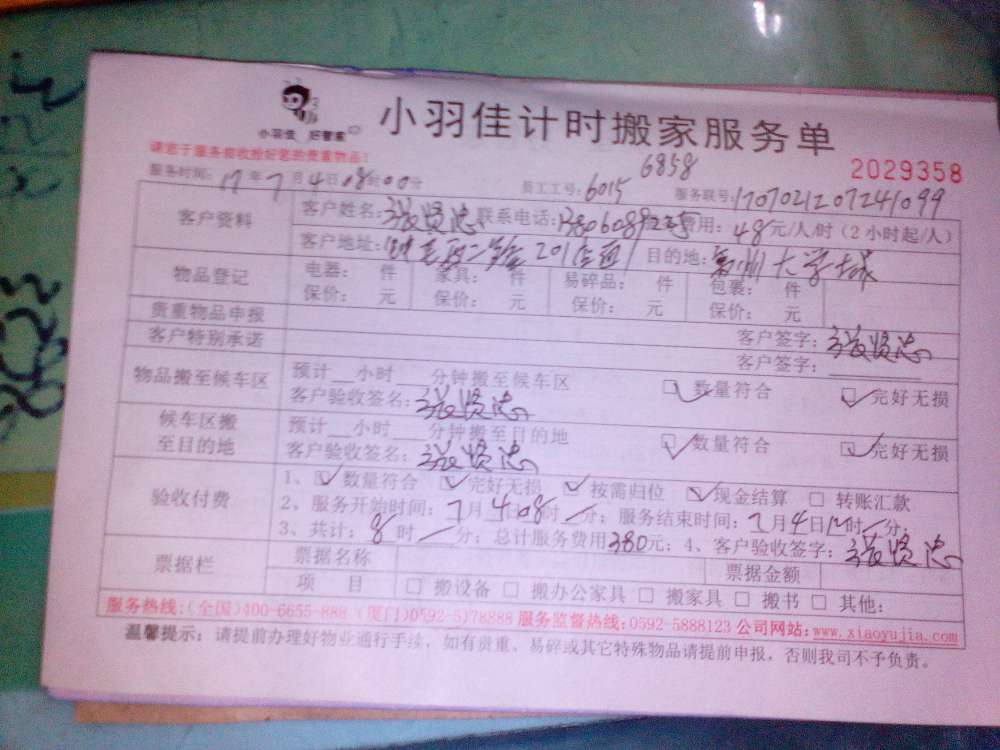 小羽佳 好管家
小羽佳计时搬家服务单
请您于服务前收拾好您的贵重物品!
6858
2029358
服务时间: 17年7月4日08时00分 员工工号: 6015 服务联号: 1707021207241099
客户资料 客户姓名: 张贤忠 联系电话: 费用: 48元/人/时 (2小时起/人)
客户地址: 201 目的地: 大学城
物品登记 电器: 件 家具: 件 易碎品: 件 包裹: 件
保价: 元 保价: 元 保价: 元 保价: 元
贵重物品申报 客户签字: 张贤忠
客户特别承诺 客户签字:
物品搬至候车区 预计__小时___分钟搬至候车区 数量符合 完好无损
客户验收签名: 张贤忠
候车区搬至目的地 预计__小时___分钟搬至目的地 数量符合 完好无损
客户验收签名: 张贤忠
验收付费 1、 数量符合 完好无损 按需归位 现金结算 转账汇款
2、服务开始时间: 7月4日08时/分; 服务结束时间: 7月4日12时/分;
3、共计: 8时/分; 总计服务费用380元; 4、客户验收签字: 张贤忠
票据栏 票据名称 票据金额
项 目 搬设备 搬办公家具 搬家具 搬书 其他:
服务热线:(全国)400-6655-888 (厦门)0592-5178888 服务监督热线:0592-5888123 公司网站:www.xiaoyujia.com
温馨提示: 请提前办理好物业通行手续, 如有贵重、易碎或其它特殊物品请提前申报, 否则我司不予负责。